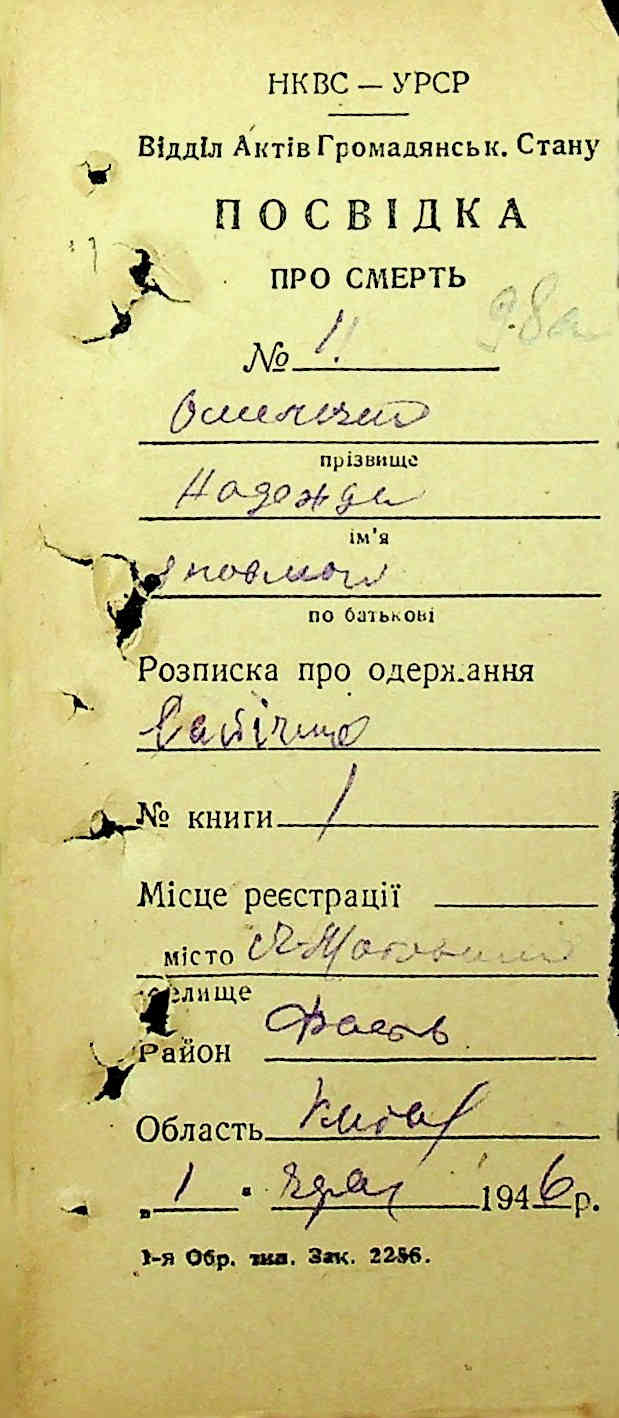 НКВС — УРСР
Відділ Актів Громадянськ. Стану
ПОСВІДКА
ПРО СМЕРТЬ
98а
№ 11
прізвище
Надежда
ім'я
по батькові
Розписка про одержання
№ книги 1
Місце реєстрації
місто
селище
Район Фаст
Область Київ
„1" 1946 р.
1-я Обр. тип. Зак. 2256.